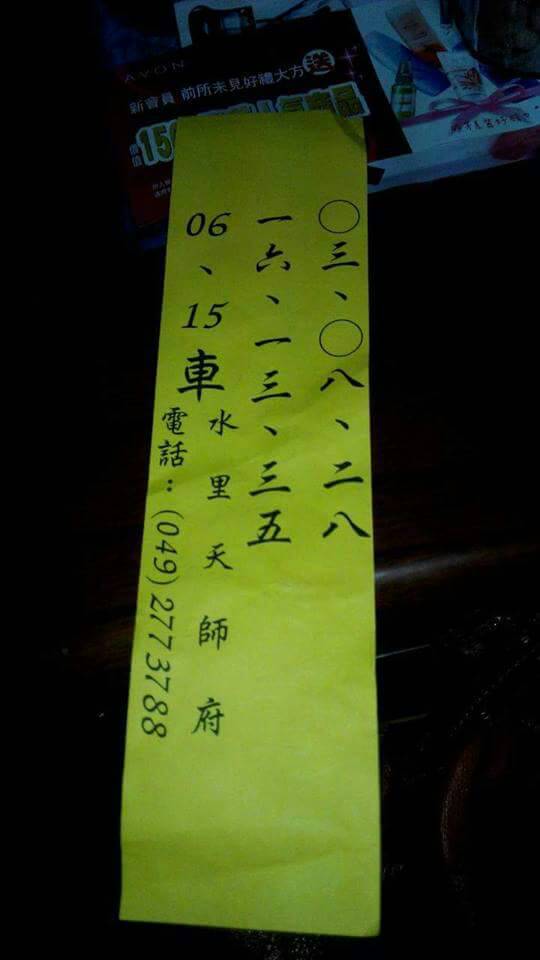 AVON
新會員 前所未見好禮大方送
〇三、〇八、二八
一六、一三、三五
06、15車
水里天師府
電話：(049)2773788